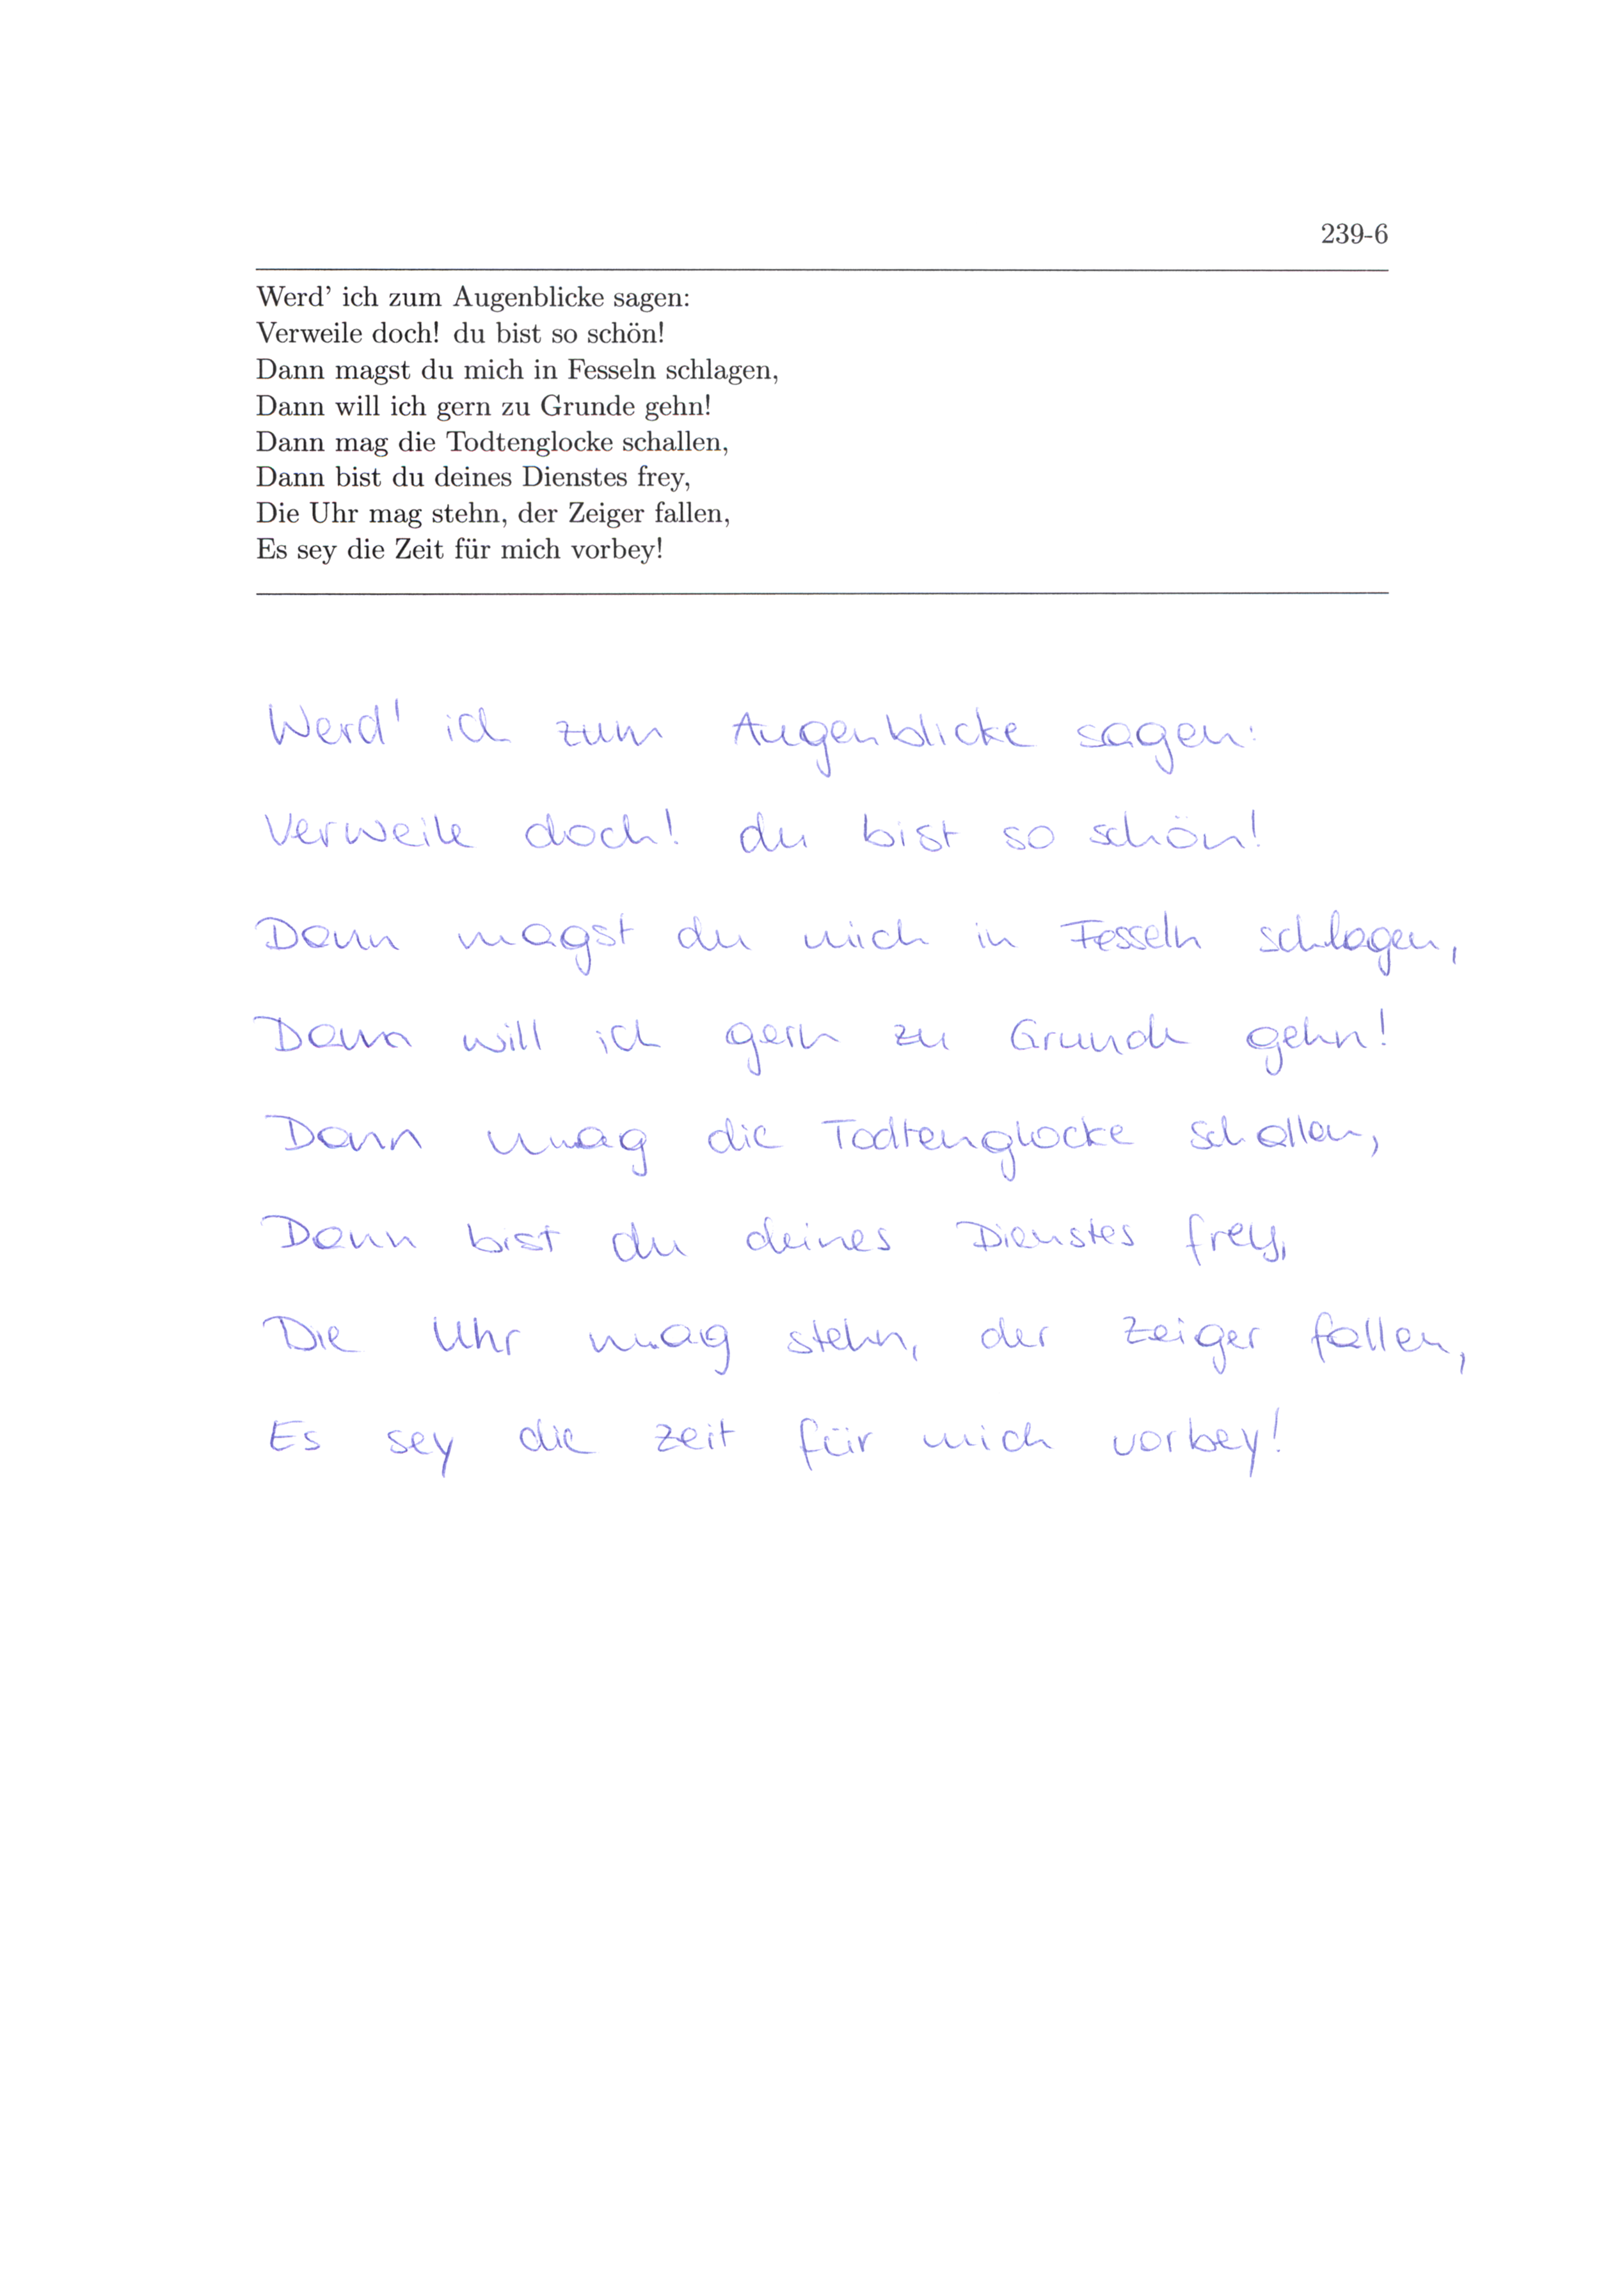 239-6
Werd' ich zum Augenblicke sagen:
Verweile doch! du bist so schön!
Dann magst du mich in Fesseln schlagen,
Dann will ich gern zu Grunde gehn!
Dann mag die Todtenglocke schallen,
Dann bist du deines Dienstes frey,
Die Uhr mag stehn, der Zeiger fallen,
Es sey die Zeit für mich vorbey!
Werd' ich zum Augenblicke sagen:
Verweile doch! du bist so schön!
Dann magst du mich in Fesseln schlagen,
Dann will ich gern zu Grunde gehn!
Dann mag die Todtenglocke schallen,
Dann bist du deines Dienstes frey,
Die Uhr mag stehn, der Zeiger fallen,
Es sey die Zeit für mich vorbey!